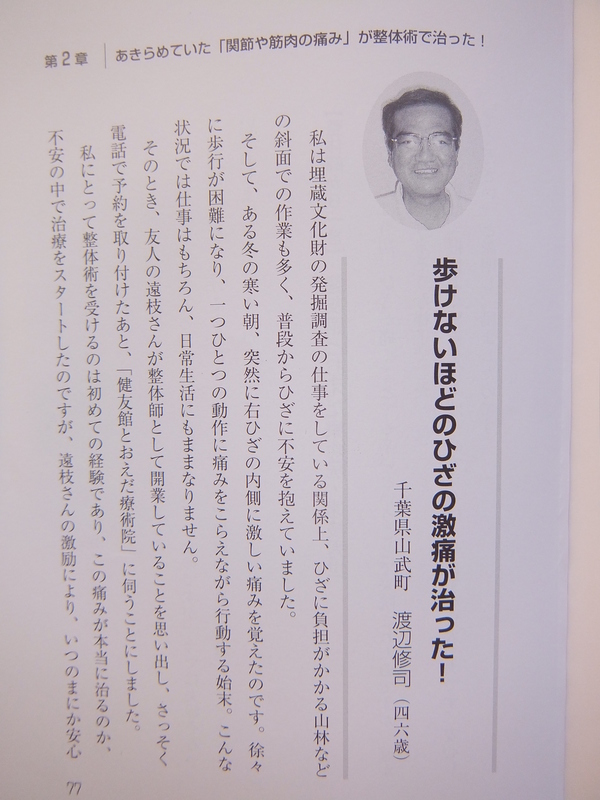 第2章 あきらめていた「関節や筋肉の痛み」が整体術で治った!
歩けないほどのひざの激痛が治った!
千葉県山武町 渡辺修司(四六歳)
私は埋蔵文化財の発掘調査の仕事をしている関係上、ひざに負担がかかる山林など
の斜面での作業も多く、普段からひざに不安を抱えていました。
そして、ある冬の寒い朝、突然に右ひざの内側に激しい痛みを覚えたのです。徐々
に歩行が困難になり、一つひとつの動作に痛みをこらえながら行動する始末。こんな
状況では仕事はもちろん、日常生活にもままなりません。
そのとき、友人の遠枝さんが整体師として開業していることを思い出し、さっそく
電話で予約を取り付けたあと、「健友館とおえだ療術院」に伺うことにしました。
私にとって整体術を受けるのは初めての経験であり、この痛みが本当に治るのか、
不安の中で治療をスタートしたのですが、遠枝さんの激励により、いつのまにか安心
77